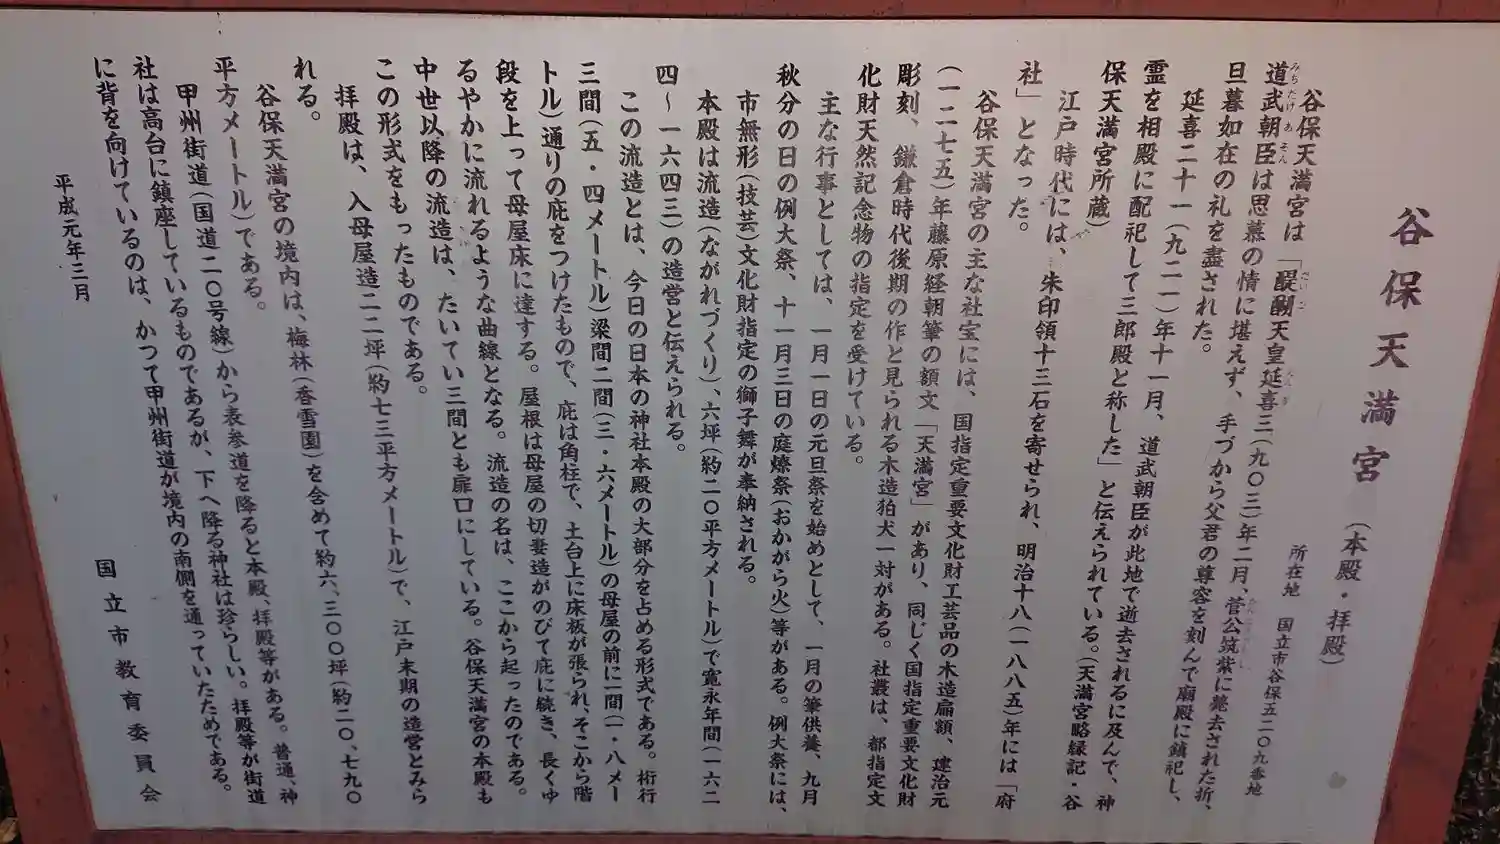 谷保天満宮（本殿・拝殿）
所在地　国立市谷保五二〇九番地
谷保天満宮は「醍醐天皇延喜三（九〇三）年二月、菅公筑紫に薨去された折、
道武朝臣は思慕の情に堪えず、手づから父君の尊容を刻んで廟殿に鎮祀し、
旦暮如在の礼を盡された。
延喜二十一（九二一）年十一月、道武朝臣が此地で逝去されるに及んで、神
霊を相殿に配祀して三郎殿と称した」と伝えられている。（天満宮略縁記・谷
保天満宮所蔵）
江戸時代には、朱印領十三石を寄せられ、明治十八（一八八五）年には「府
社」となった。
谷保天満宮の主な社宝には、国指定重要文化財工芸品の木造扁額、建治元
（一二七五）年藤原経朝筆の額文「天満宮」があり、同じく国指定重要文化財
彫刻、鎌倉時代後期の作と見られる木造狛犬一対がある。社叢は、都指定文
化財天然記念物の指定を受けている。
主な行事としては、一月一日の元旦祭を始めとして、一月の筆供養、九月
秋分の日の例大祭、十一月三日の庭燎祭（おかがら火）等がある。例大祭には、
市無形（技芸）文化財指定の獅子舞が奉納される。
本殿は流造（ながれづくり）、六坪（約二〇平方メートル）で寛永年間（一六二
四〜一六四三）の造営と伝えられる。
この流造とは、今日の日本の神社本殿の大部分を占める形式である。桁行
三間（五・四メートル）梁間二間（三・六メートル）の母屋の前に一間（一・八メー
トル）通りの庇をつけたもので、庇は角柱で、土台上に床板が張られ、そこから階
段を上って母屋床に達する。屋根は母屋の切妻造がのびて庇に続き、長くゆ
るやかに流れるような曲線となる。流造の名は、ここから起ったのである。
中世以降の流造は、たいてい三間とも扉口にしている。谷保天満宮の本殿も
この形式をもったものである。
拝殿は、入母屋造二二坪（約七三平方メートル）で、江戸末期の造営とみら
れる。
谷保天満宮の境内は、梅林（香雪園）を含めて約六、三〇〇坪（約二〇、七九〇
平方メートル）である。
甲州街道（国道二〇号線）から表参道を降ると本殿、拝殿等がある。普通、神
社は高台に鎮座しているものであるが、下へ降る神社は珍らしい。拝殿等が街道
に背を向けているのは、かつて甲州街道が境内の南側を通っていたためである。
平成元年三月
国立市教育委員会